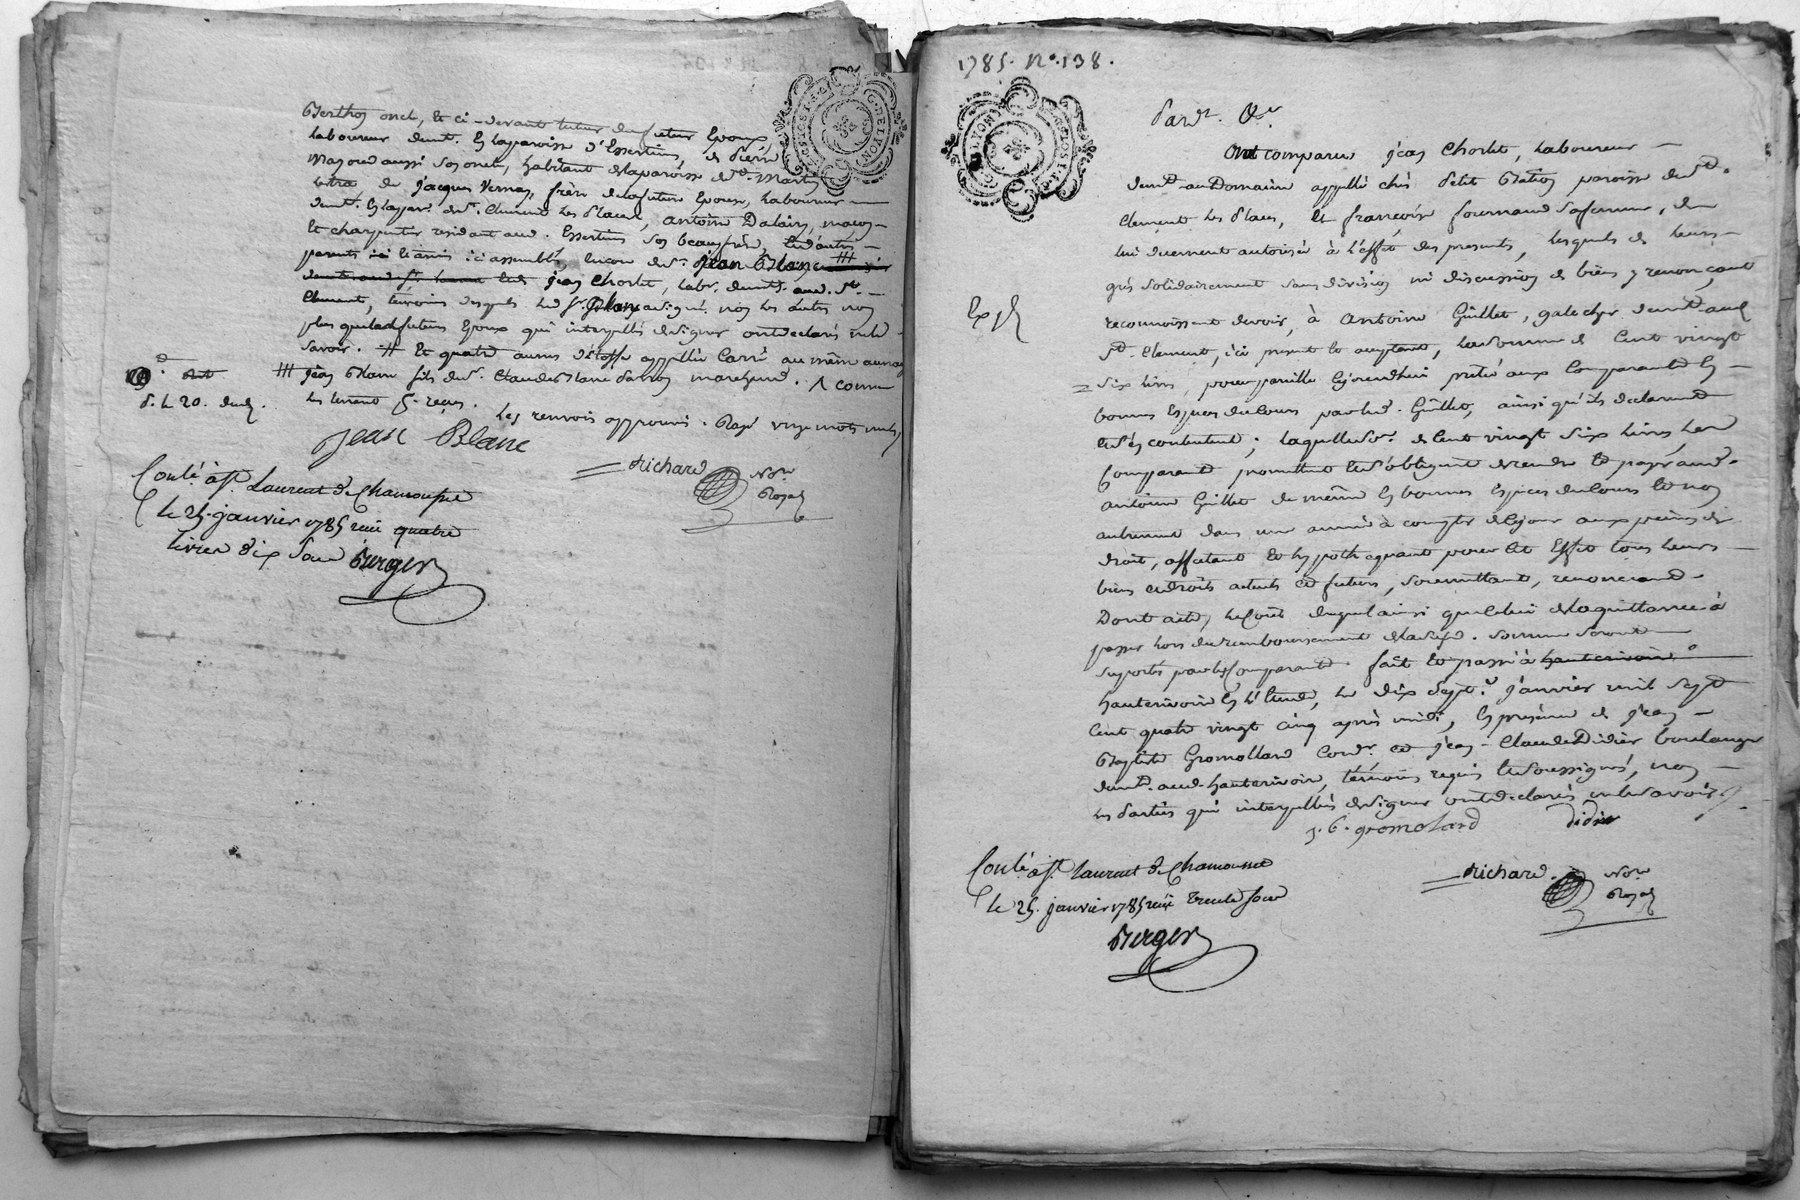 Berthod oncle, et ci-devant tuteur du futur Epoux
laboureur demt. En laparoisse d'Essertines, de Pierre
aussi son oncle, habitant delaparoisse de St. Martin
de jacques Vernay, frère delafuture Epouse, laboureur
demt. En lapar. de St. Clement les Places, antoine maçon
et charpentier residant aud. Essertines son beaufrère, et d'autres
parents et amis ici assemblés, encore de Sr. jean Blanc ///
jean Chorlet, labr. demt. aud. St.
Clement, temoins desquels led. Sr. Blanc a signé non les autres non
plus que lesd. futurs Epoux qui interpellés designer ont declaré ne le
savoir. # Et quatre aunes d'étoffe appellée Carré au même aunage
/// jean Blanc fils de Sr. Claude Blanc marchand.
d. L 20. dud.
Les renvois approuvés. Rayé onze mots nuls,
jean Blanc
Richard Nore
Royal
Conlé à St. Laurent de Chamousset
le 25. janvier 1785 reçu quatre
livres dix sous Burger
1785. No. 138.
Pardt. &c
Ont comparu jean Chorlet, laboureur
demt. au Domaine appellé chés Petit paroisse de St.
Clement les Places, et françoise fournand sa femme, de
lui duement autorisée à l'effet des presentes, lesquels de leurs
grés solidairement sans division ni discussion de biens y renonçant
Exp.
reconnoissent devoir, à antoine Guillet, galocher demt. aud.
St. Clement, ici present et acceptant, la somme de Cent vingt
six livres, pour pareille cejourd'hui prêtée aux Comparants En
bonnes Espèces du cours par led. Guillet, ainsi qu'ils declarent
et s'en contentent; laquelle so. de Cent vingt six livres les
Comparants promettent et s'obligent de rendre et payer aud.
antoine Guillet de même En bonnes Espèces du cours et non
autrement dans une année à compter de ce jour aux peines de
droit, affectant et hypothequant pour cet Effet tous leurs
biens et droits actuels et futurs, soumettant, renonceant.
Dont acte, le coût duquel ainsi que celui de la quittance à
passer lors du remboursement de lad. somme seront
suportés par les Comparants. fait et passé à hauterivoire
hauterivoire En l'Etude, le dix sept janvier mil sept
Cent quatre vingt cinq après midi, En présence de jean
Baptiste Gromollard Cordr. et jean-Claude Didier boulanger
demt. aud. hauterivoire, témoins requis et soussignés, non
les Parties qui interpellées designer ont declaré ne le savoir.
j. b. gromolard Didier
Richard. Nore
Royal
Conlé à St. Laurent de Chamousset
le 25. janvier 1785 reçu trente sous
Burger